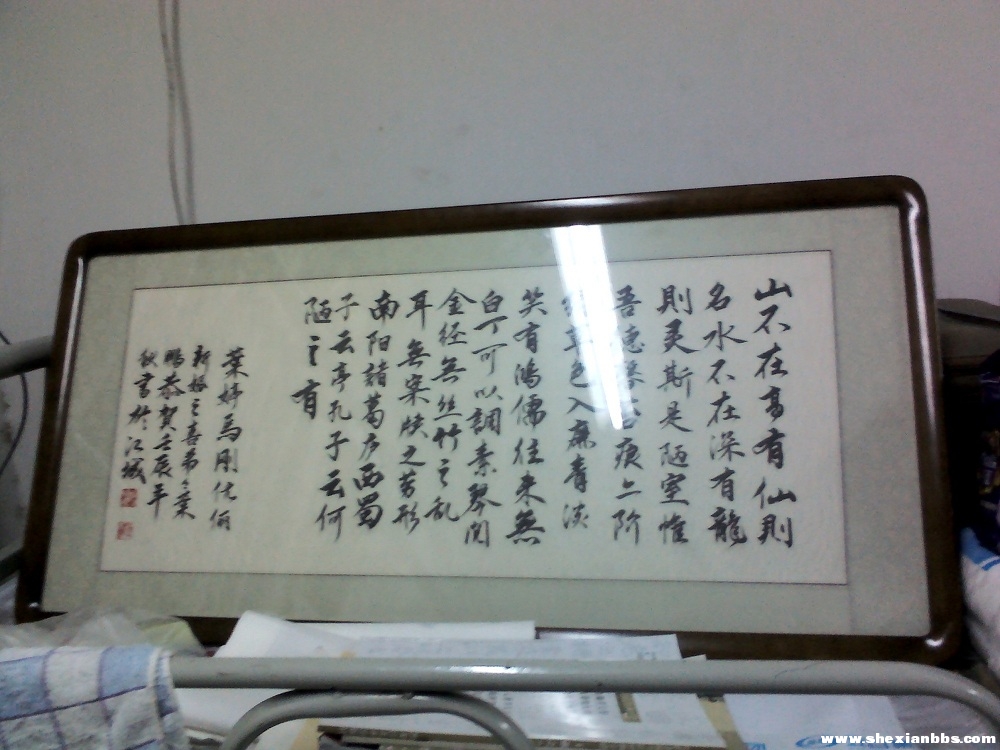 山不在高有仙則
名水不在深有龍
則灵斯是陋室惟
吾德馨苔痕上阶
草色入簾青淡
笑有鴻儒往来無
白丁可以調素琴閲
金经無丝竹之乱
耳無案牍之劳形
南阳諸葛庐西蜀
子云亭孔子云何
陋之有
葉婷馬刚伉俪
新婚之喜弟々葉
鵬恭贺壬辰年
秋書於江城
www.shexianbbs.com